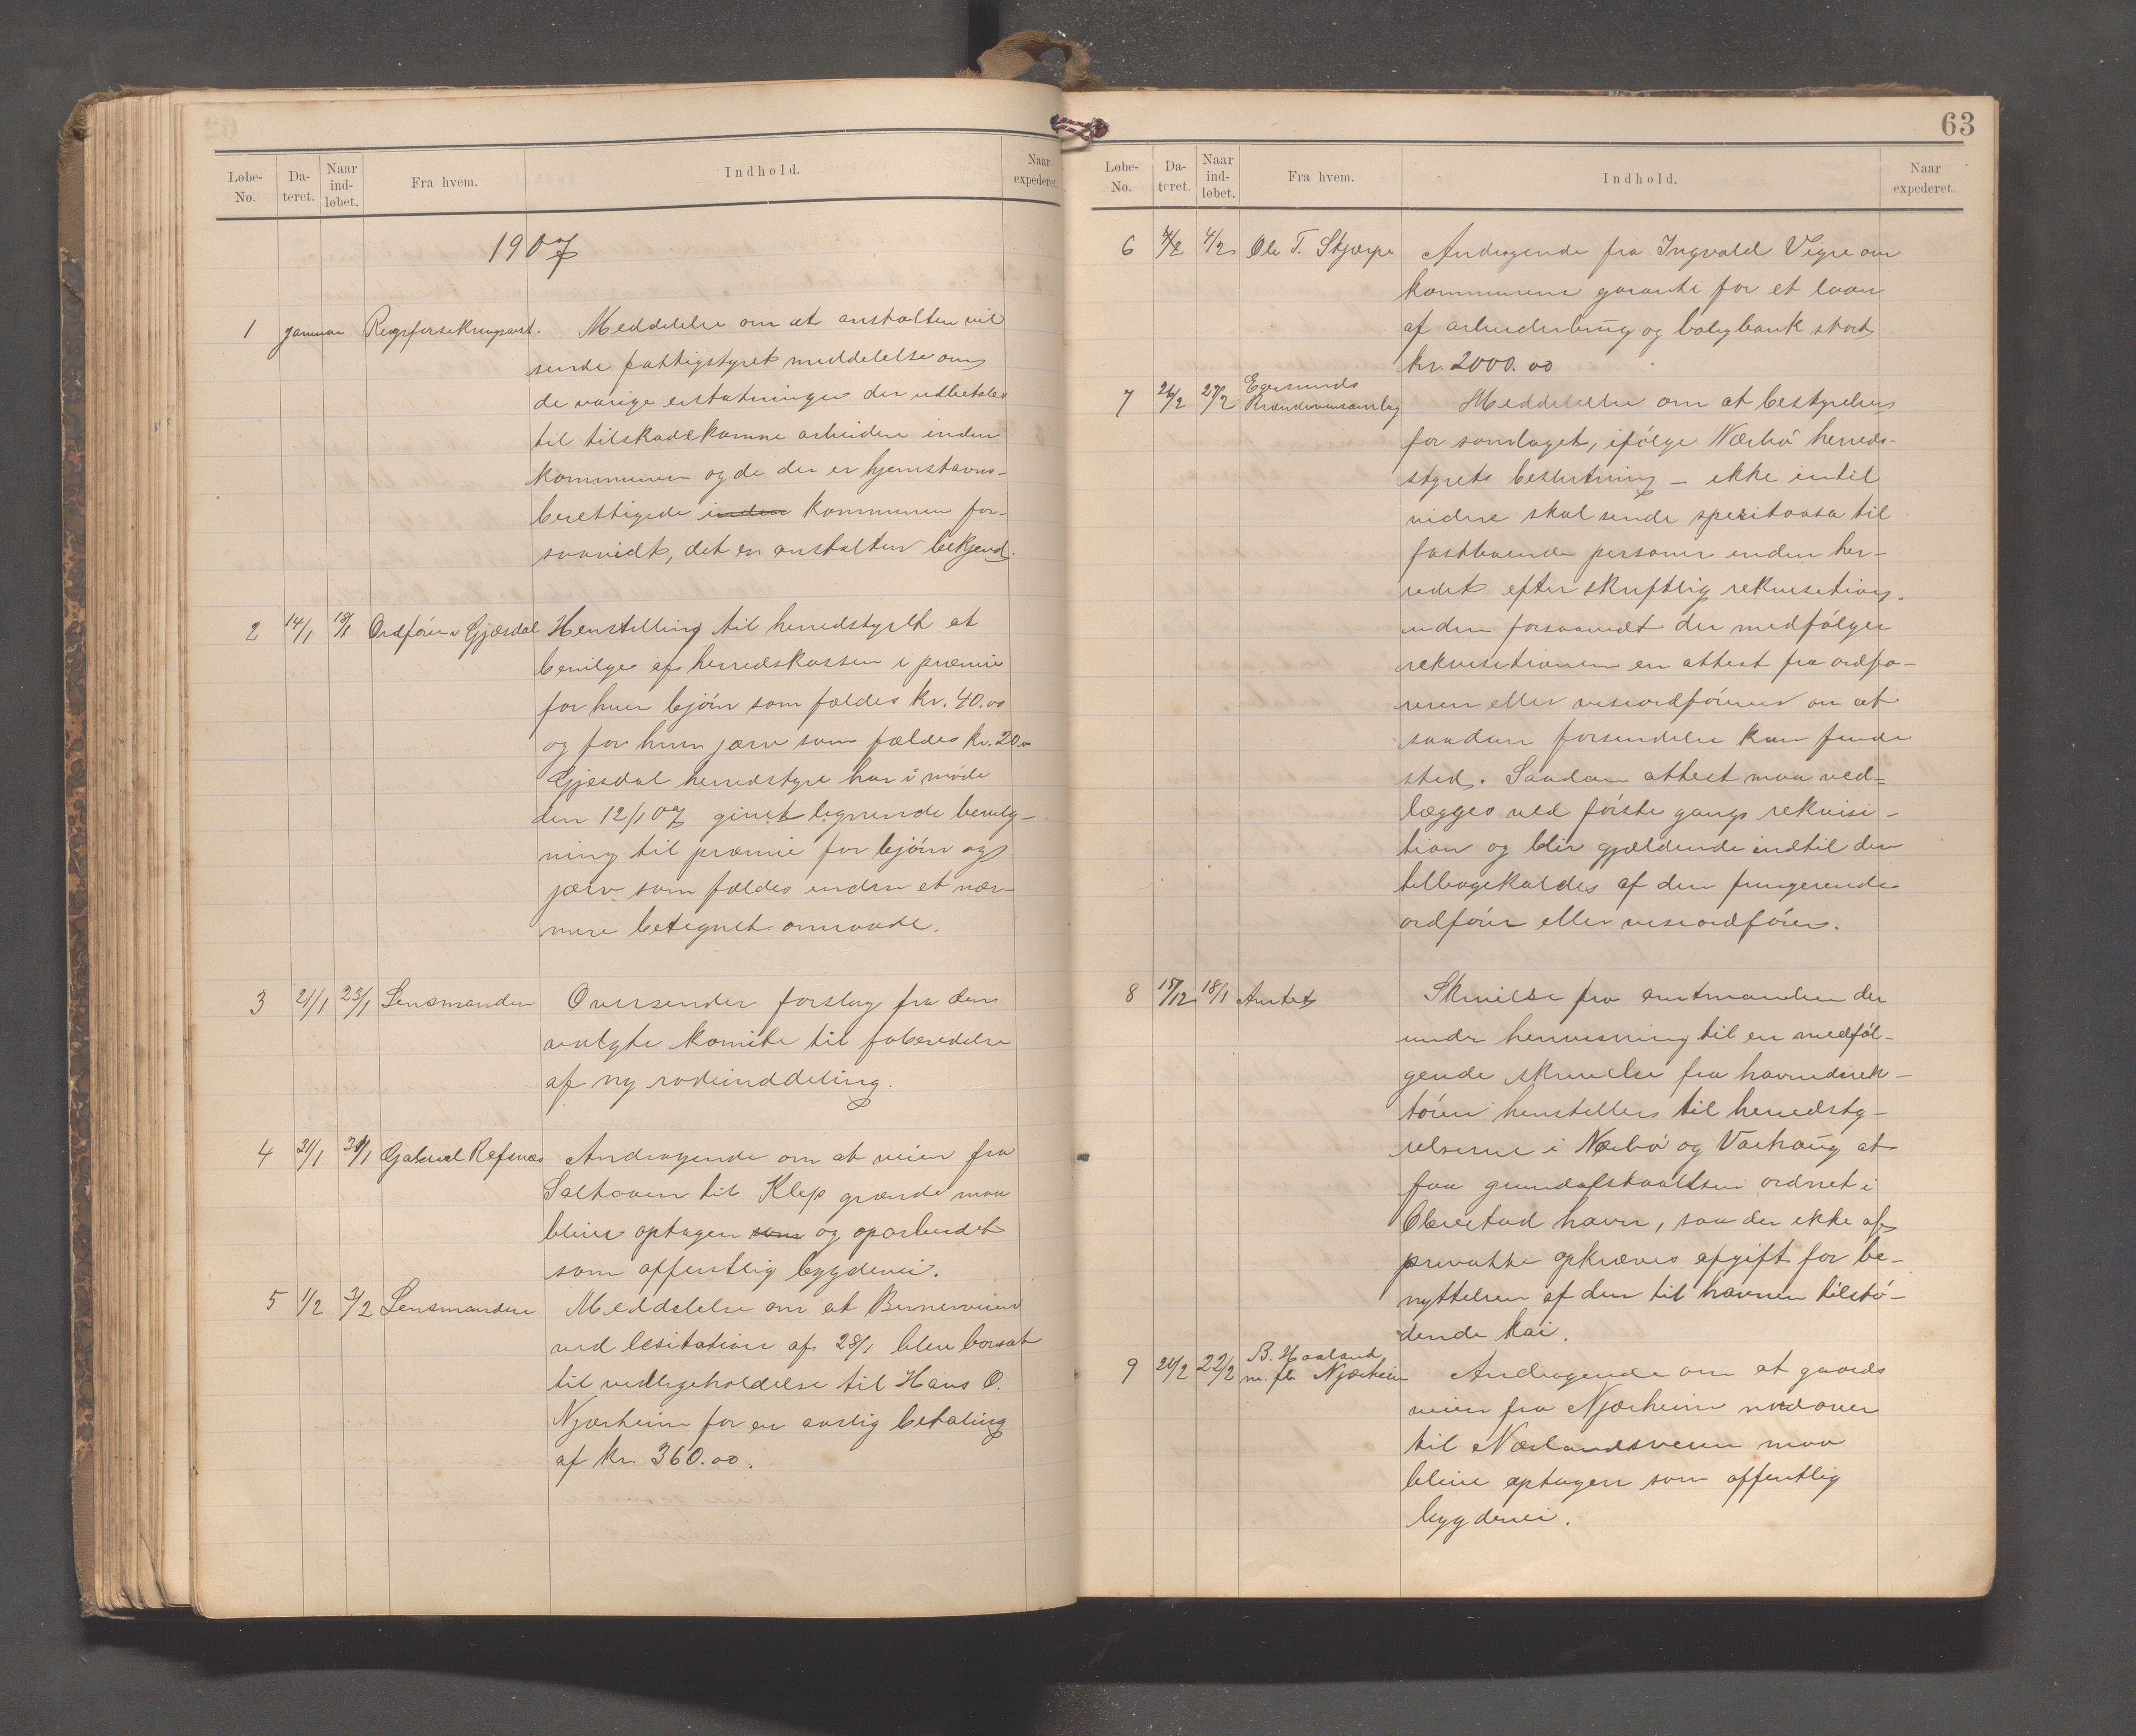 Løbe-No. Dateret. Naar indløbet. Fra hvem. Indhold. Naar expederet.
1907
1 Januar Rigsforsikringsanst. Meddelelse om at anstalten vil
sende fattigstyret meddelelse om
de varige erstatninger der utbetales
til tilskadekomne arbeidere inden
kommunen og de der er hjemstavns-
berettigede inden kommunen for-
saavidt, det er anstalten bekjend.
2 14/1 19/1 Ordføreren Gjæsdal Henstilling til herredstyret at
bevilge af herredskassen i præmie
for hver bjørn som fældes kr. 40.00
og for hver jærv som fældes kr. 20.00
Gjesdal herredstyre har i møde
den 12/1 07 givet lignende bevilg-
ning til præmie for bjørn og
jærv som fældes inden et nær-
mere betegnet omraade.
3 21/1 23/1 Lensmanden Oversender forslag fra den
valgte komite til foberedelse
af ny rodeinddeling.
4 31/1 31/1 Gabriel Refsnæs Andragende om at veien fra
Salthaven til Klep grænde maa
bliver optagen som og oparbeidet
som offentlig bygdevei.
5 1/2 3/2 Lensmanden Meddelelse om at
ved lisitation af 28/1 blev borsat
til vedligeholdelse til Hans O.
Njærheim for en aarlig betaling
af kr. 360.00.
63
Løbe-No. Dateret. Naar indløbet. Fra hvem. Indhold. Naar expederet.
6 4/2 4/2 Ole T. Skjærpe Andragende fra Ingvald Vigre om
kommunens garanti for et laan
af arbeiderbrug og boligbank stort
kr. 2000.00
7 26/2 27/2 Egersunds
Brændevinsamlag Meddelelse om at bestyrelsen
for samlaget, ifølge Nærbø herreds-
styrets beslutning – ikke intil
videre skal sende spiritoasa til
fastboende personer inden her-
redet efter skriftlig rekvisition,
uden forsaavidt der medfølger
rekvisitionen en attest fra ordfø-
reren eller viseordføreren om at
saadan forsendelse kan finde
sted. Saadan attest maa ved-
lægges ved første gangs rekvisi-
tion og blir gjældende indtil den
tilbagekaldes af den fungerende
ordfører eller viseordfører.
8 15/12 18/1 Amtet Skrivelse fra amtmanden der
under henvisning til en medføl-
gende skrivelse fra havnedirek-
tøren henstiller til herredsty-
relserne i Nærbø og Varhaug at
faa grundafstaaelsen ordnet i
Obrestad havn, saa der ikke af
private opkræves afgift for be-
nyttelsen af den til havnen tilstø-
dende kai.
9 20/2 22/2 B. Haaland
m. fl. Njærheim Andragende om at gaards
veien fra Njærheim nedover
til Nærlandsveien maa
blive optagen som offentlig
bygdevei.